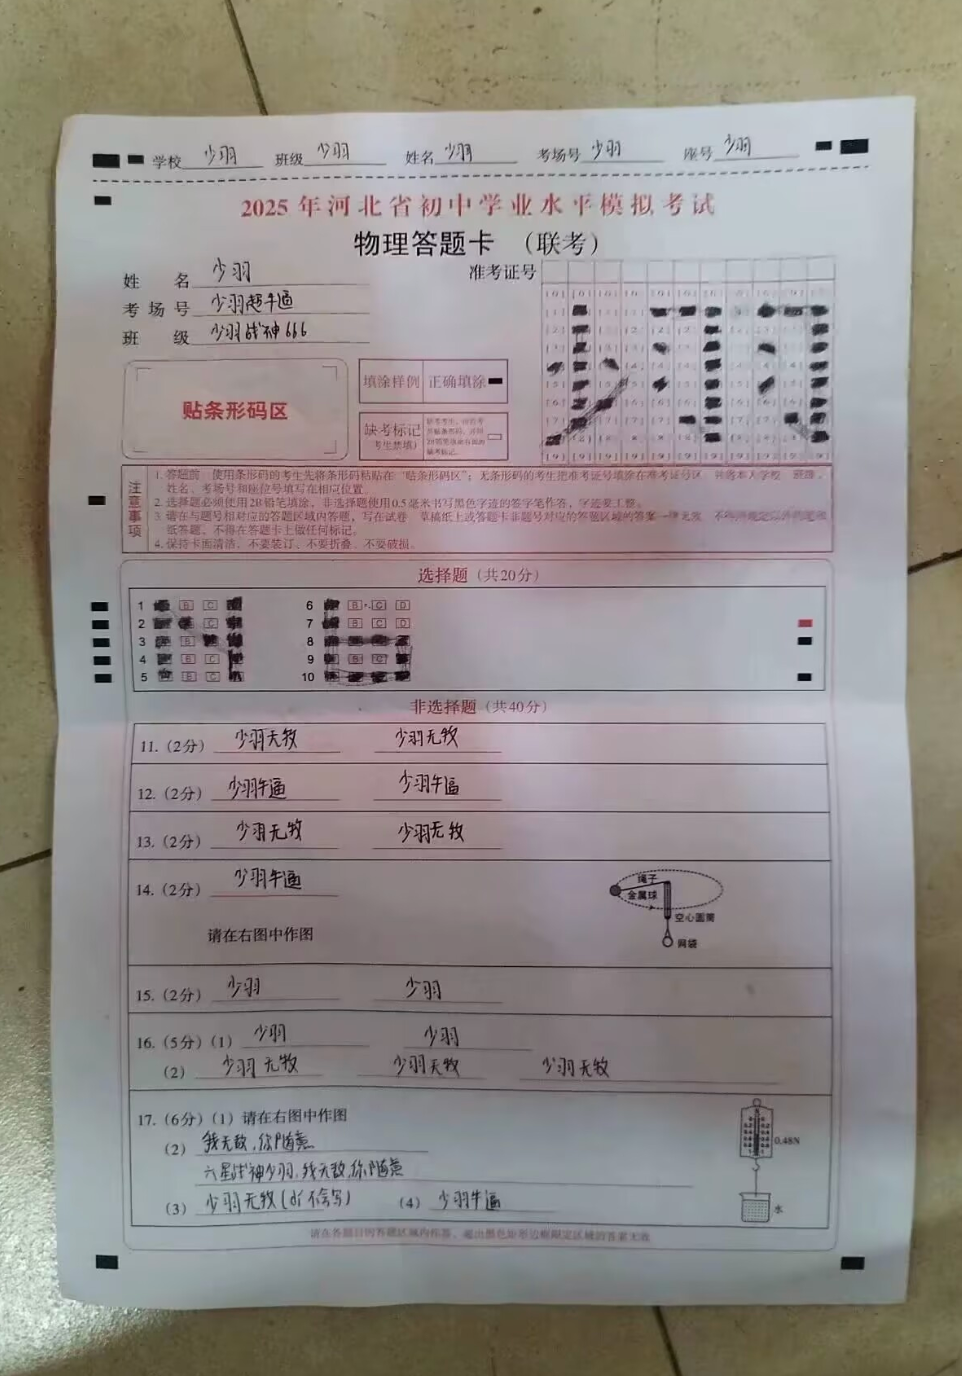 学校 少羽 班级 少羽 姓名 少羽 考场号 少羽 座号 少羽
2025年河北省初中学业水平模拟考试
物理答题卡 （联考）
姓名 少羽
准考证号
考场号 少羽超牛逼
班级 少羽战神666
贴条形码区
填涂样例 正确填涂
缺考标记
注意事项
1. 答题前，使用条形码的考生先将条形码粘贴在“贴条形码区”；无条形码的考生把准考证号填涂在准考证号区，并将本人学校、班级、
姓名、考场号和座位号填写在相应位置。
2. 选择题必须使用2B铅笔填涂，非选择题使用0.5毫米书写黑色字迹的签字笔作答，字迹要工整。
3. 请在与题号相对应的答题区域内答题，写在试卷、草稿纸上或答题卡非题号对应的答题区域的答案一律无效。
纸答题，不得在答题卡上做任何标记。
4. 保持卡面清洁，不要装订、不要折叠、不要破损。
选择题（共20分）
1 B C
6 B C D
2 C
7 B C D
3 B
8
4 B C
9 B C
5 B C
10
非选择题（共40分）
11.（2分） 少羽无敌 少羽无敌
12.（2分） 少羽牛逼 少羽牛逼
13.（2分） 少羽无敌 少羽无敌
14.（2分） 少羽牛逼
请在右图中作图
绳子
金属球
空心圆筒
网袋
15.（2分） 少羽 少羽
16.（5分）（1） 少羽 少羽
（2） 少羽无敌 少羽无敌 少羽无敌
17.（6分）（1）请在右图中作图
（2） 我无敌，你随意
六星战神少羽，我无敌，你随意
（3） 少羽无敌（di不会写） （4） 少羽牛逼
0.48N
水
请在各题目的答题区域内作答，超出黑色矩形边框限定区域的答案无效